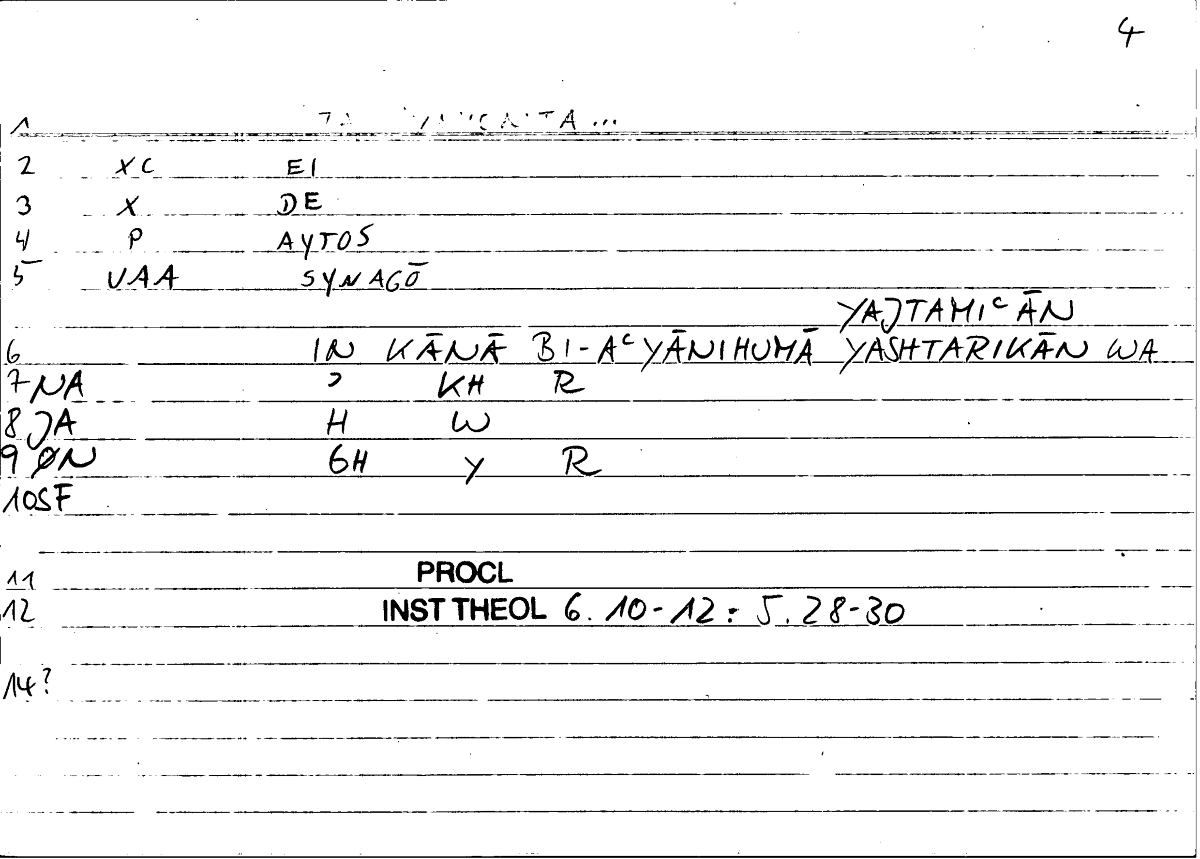 4
1 ...
2 XC EI
3 X DE
4 P AYTOS
5 VAA SYNAGŌ
YAJTAMIᶜĀN
6 IN KĀNĀ BI-AᶜYĀNIHUMĀ YASHTARIKĀN WA
7 NA ʾ KH R
8 JA H W
9 ØN GH Y R
10 SF
11 PROCL
12 INST THEOL 6.10-12: 5.28-30
14?